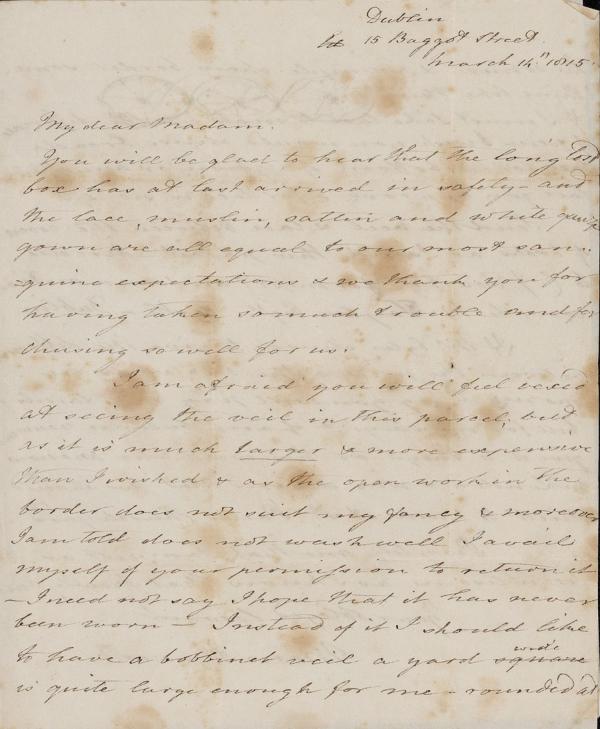 Dublin
15 Baggot Street
March 14th 1815.
My dear Madam.
You will be glad to hear that the long lost
box has at last arrived in safety – and
the lace, muslin, sattin and white
gown are all equal to our most san=
=guine expectations & we thank you for
having taken so much trouble and for
chusing so well for us.
I am afraid you will feel vexed
at seeing the veil in this parcel, but
as it is much larger & more expensive
than I wished & as the open work in the
border does not suit my fancy & moreover
I am told does not wash well I avail
myself of your permission to return it
– I need not say I hope that it has never
been worn – Instead of it I should like
to have a bobbinet veil a yard square wide
is quite large enough for me – rounded at